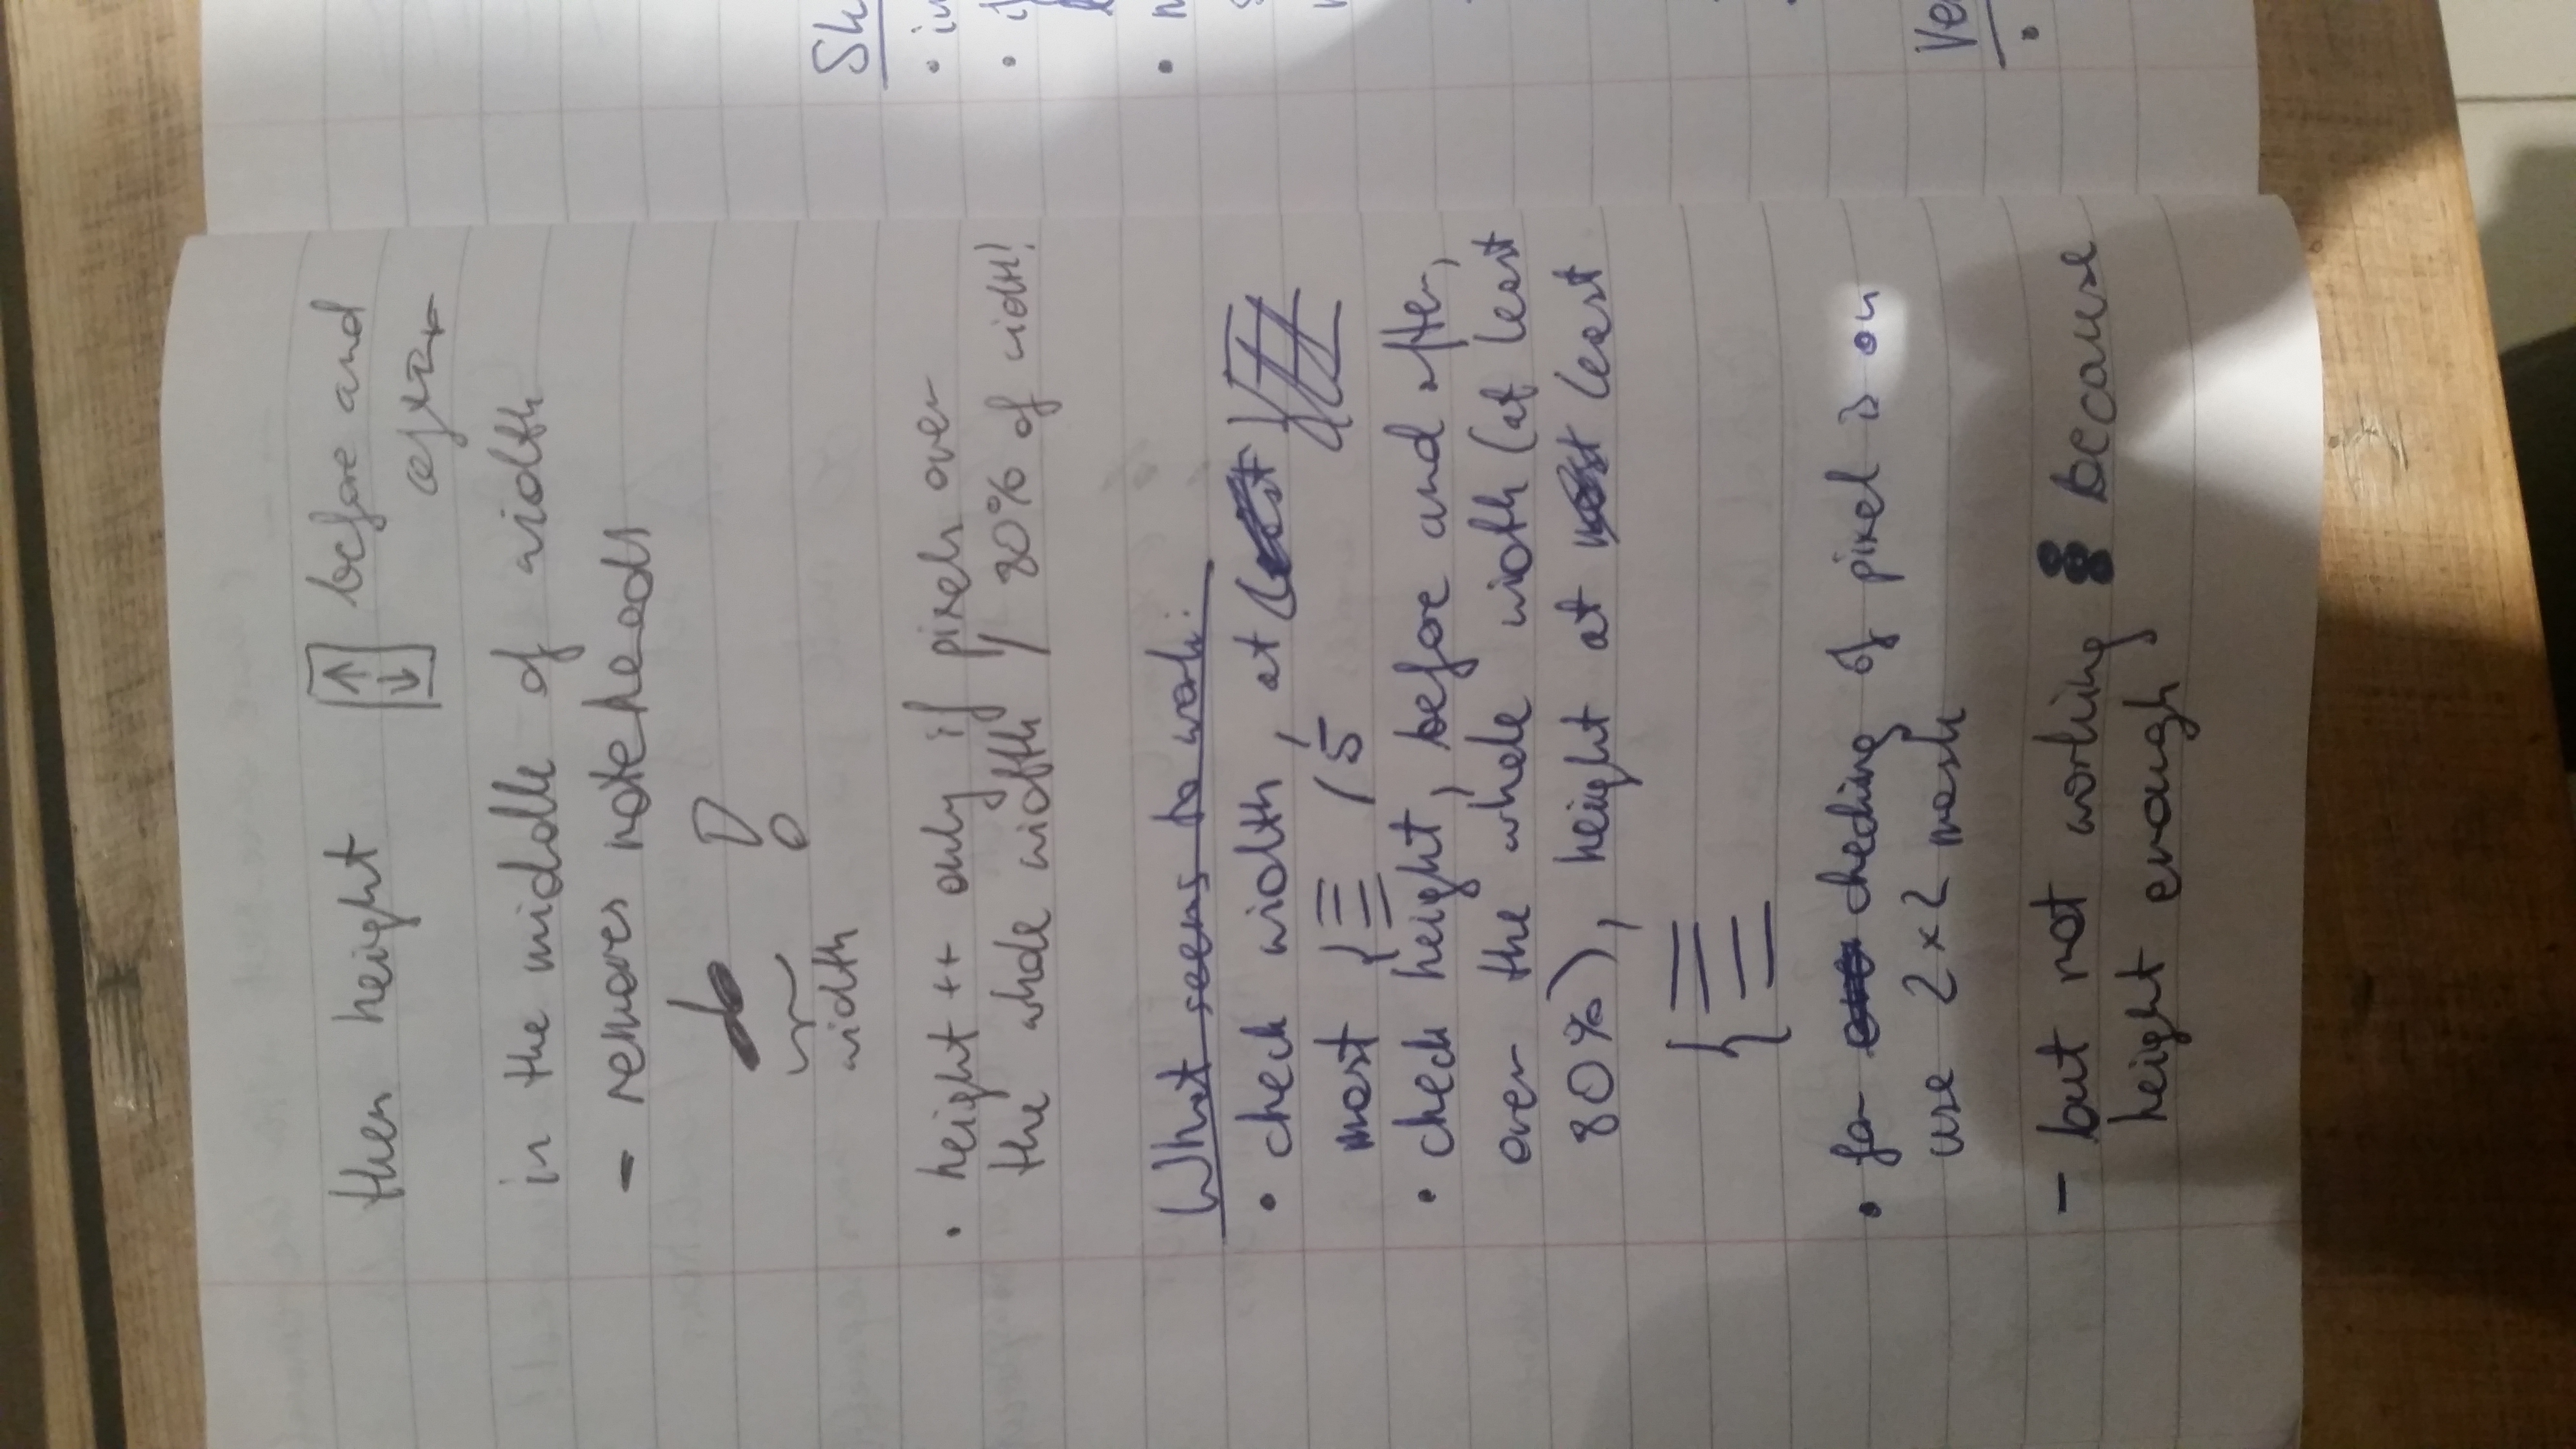 then height before and
after
in the middle of width
- removes noteheads
width
• height ++ only if pixels over
the whole width / 80% of width!
What seems to work:
• check width, at least
most /5
• check height, before and after,
over the whole width (at least
80%), height at most least
• for checking if pixel is on
use 2x2 mask
- but not working because
height enough